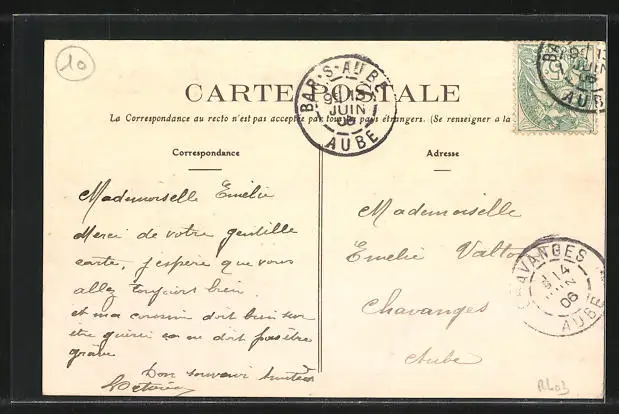 10
CARTE POSTALE
La Correspondance au recto n'est pas acceptée par tous les pays étrangers. (Se renseigner a la
Correspondance
Mademoiselle Emélie
Merci de votre gentille
carte, j'espère que vous
allez toujours bien
et ma cousine doit bien sur
être guérie ça ne doit pas être
grave
Bon souvenir
Adresse
Mademoiselle
Emelie Valton
Chavanges
Aube
BAR-S-AUBE
JUIN
06
AUBE
BAR
JUIN
06
AUBE
CHAVANGES
14
JUIN
06
AUBE